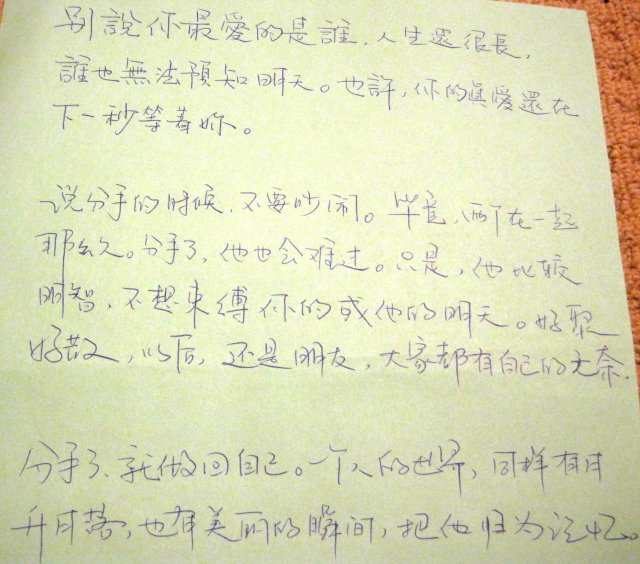 別說你最愛的是誰，人生還很長，
誰也無法預知明天。也許，你的真愛還在
下一秒等着妳。
说分手的时候，不要吵闹。毕竟，两个在一起
那么久。分手了，他也会难过。只是，他比较
明智，不想束缚你的或他的明天。好聚
好散，以后，还是朋友，大家都有自己的无奈.
分手了、就做回自己。一个人的世界，同样有月
升月落，也有美丽的瞬间，把他归为记忆。